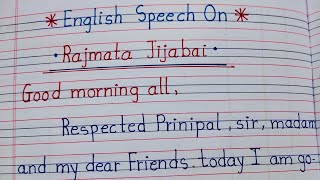 * English Speech On *
• Rajmata Jijabai •
Good morning all,
Respected Prinipal, sir, madam
and my dear Friends. today I am go-